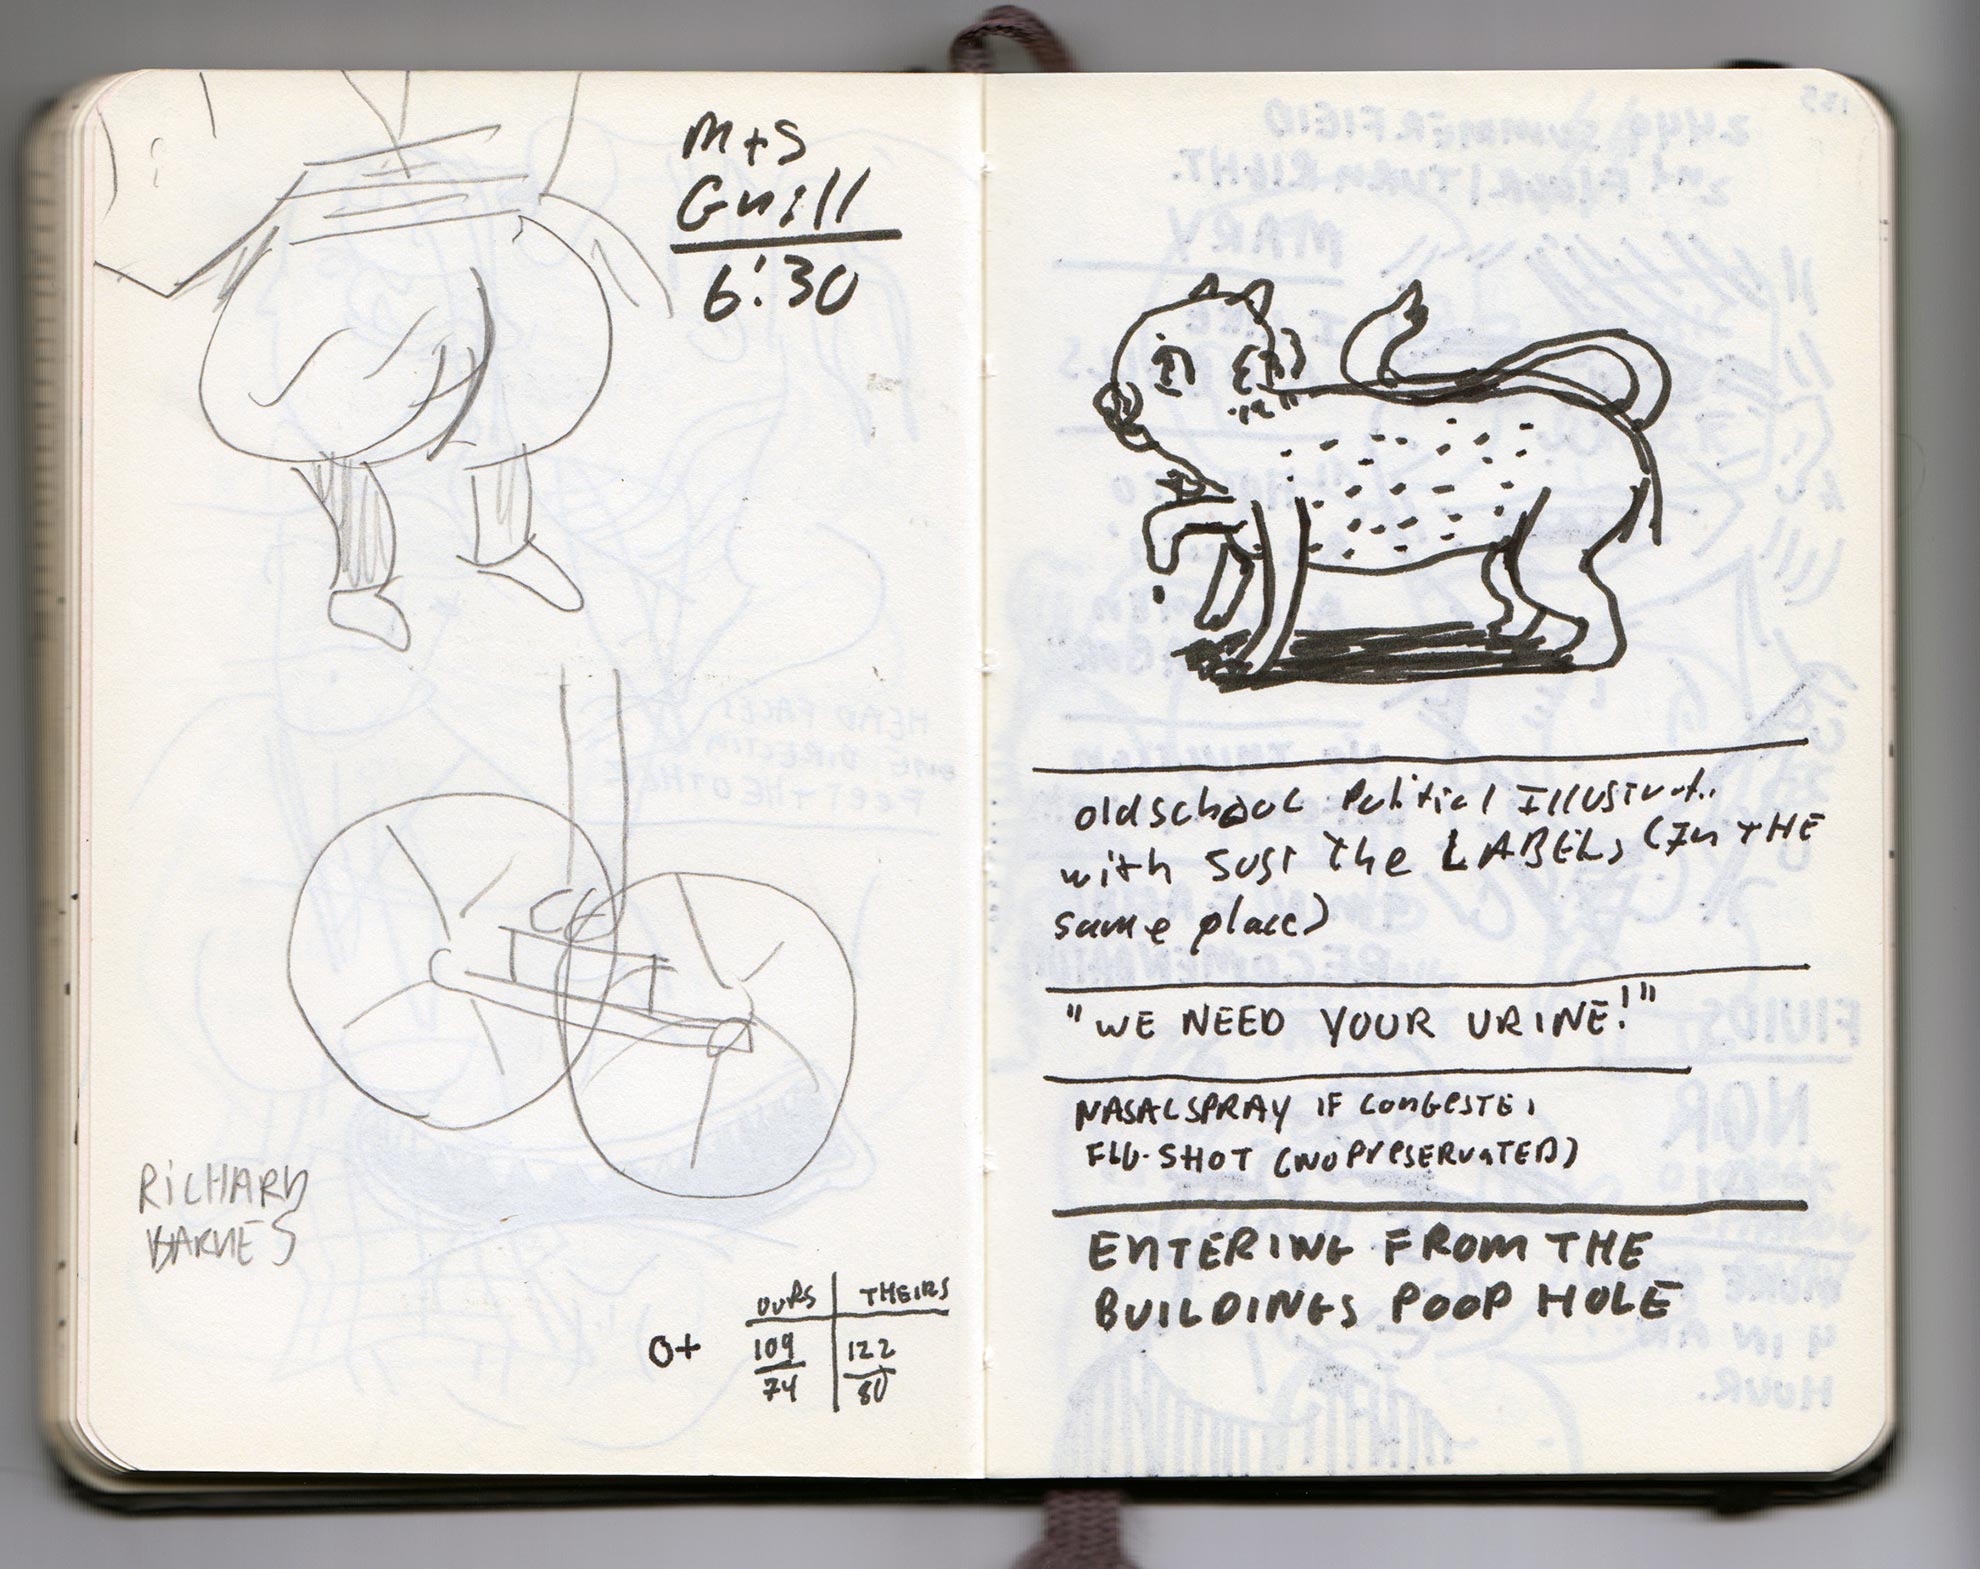 M+S
Grill
6:30
RICHARD
BARNES
OURS THEIRS
O+ 109 122
74 80
oldschool Political Illustrat..
with Just The LABELS (In THE
same place)
"WE NEED YOUR URINE!"
NASAL SPRAY IF CONGESTE,
FLU-SHOT (NO PreSERVATED)
ENTERING FROM THE
BUILDINGS POOP HOLE